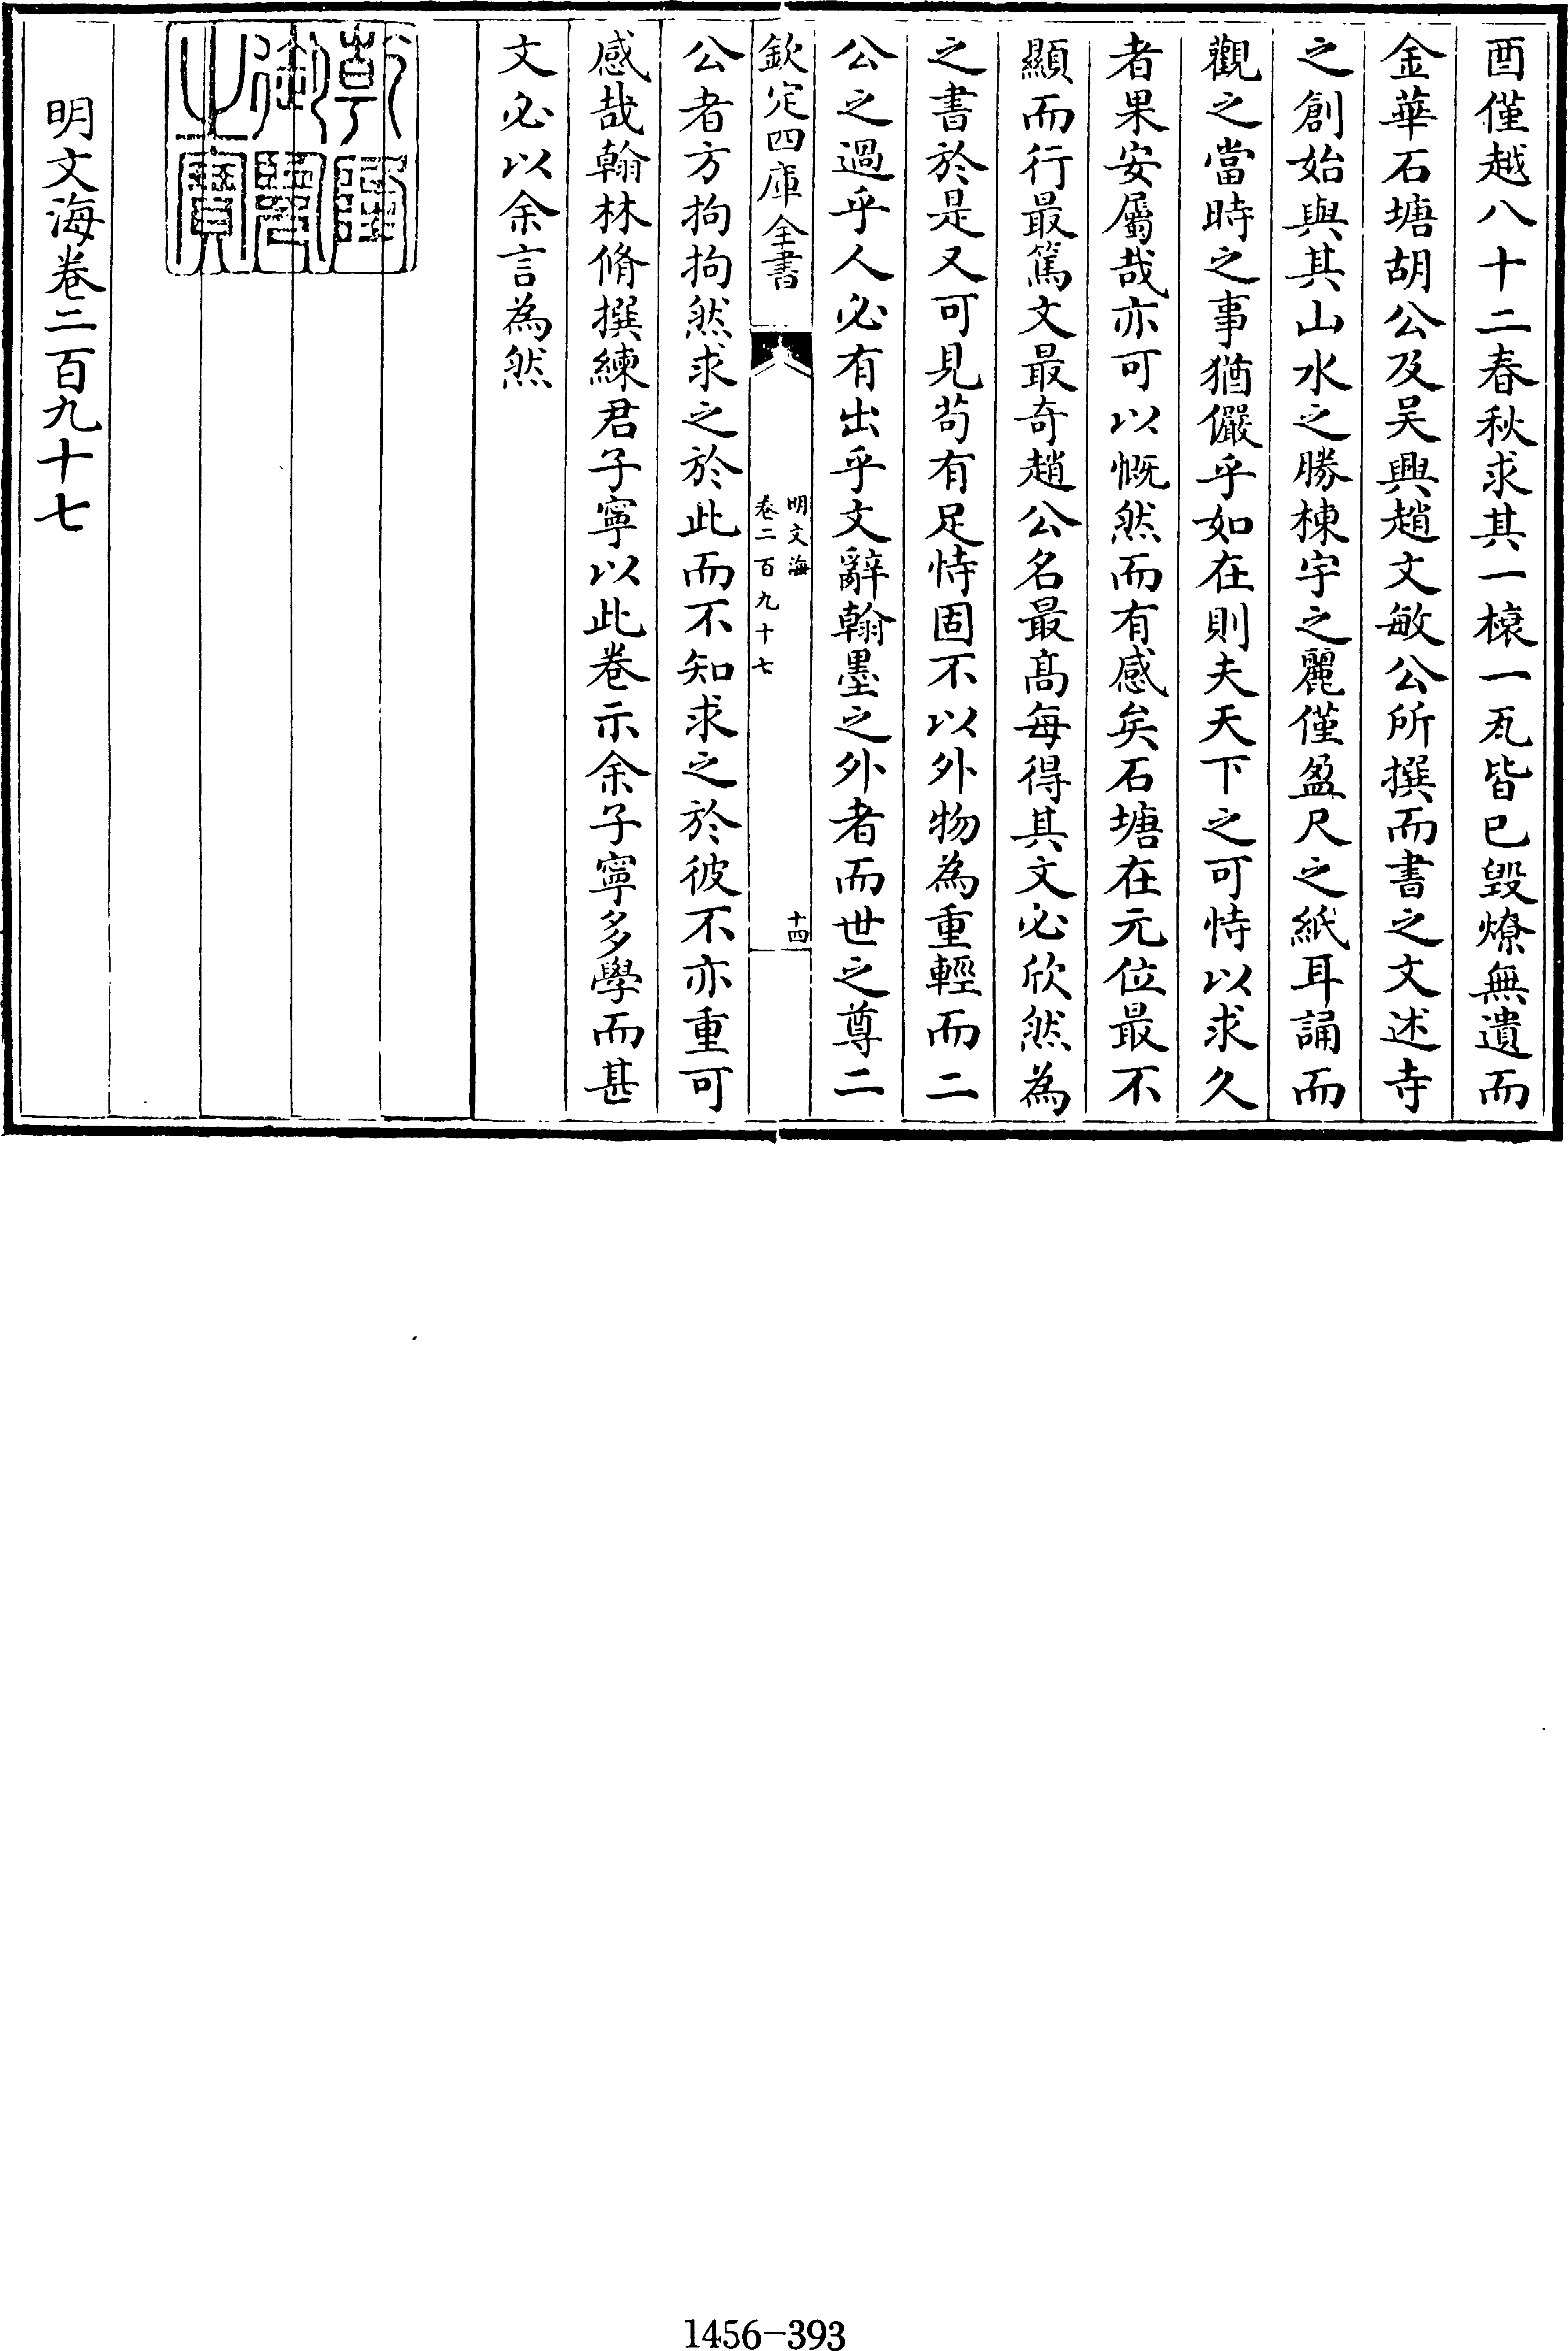 酉僅越八十二春秋求其一榱一瓦皆已毀燎無遺而
金華石塘胡公及吴興趙文敏公所撰而書之文述寺
之創始與其山水之勝棟宇之麗僅盈尺之紙耳誦而
觀之當時之事猶儼乎如在則夫天下之可恃以求久
者果安屬哉亦可以慨然而有感矣石塘在元位最不
顯而行最篤文最奇趙公名最髙每得其文必欣然為
之書於是又可見苟有足恃固不以外物為重輕而二
公之過乎人必有出乎文辭翰墨之外者而世之尊二
欽定四庫全書
明文海
卷二百九十七
十四
公者方拘拘然求之於此而不知求之於彼不亦重可
感哉翰林脩撰練君子寧以此卷示余子寧多學而甚
文必以余言為然
乾隆
御覽
之寶
明文海卷二百九十七
1456-393